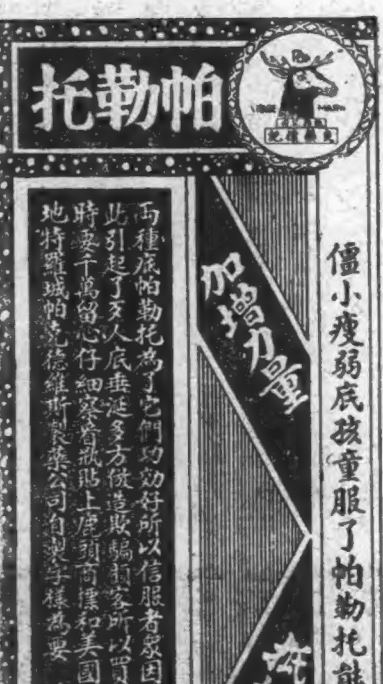 帕勒托
MARK
僵小瘦弱底孩童服了帕勒托能
加增力量
兩種底帕勒托為了它們功効好所以信服者眾因
此引起了多人底垂涎多方倣造欺騙顧客所以買
時要千萬留心仔細察看瓶貼上鹿頭商標和美國
地特羅城帕克德維斯製藥公司自製字樣為要